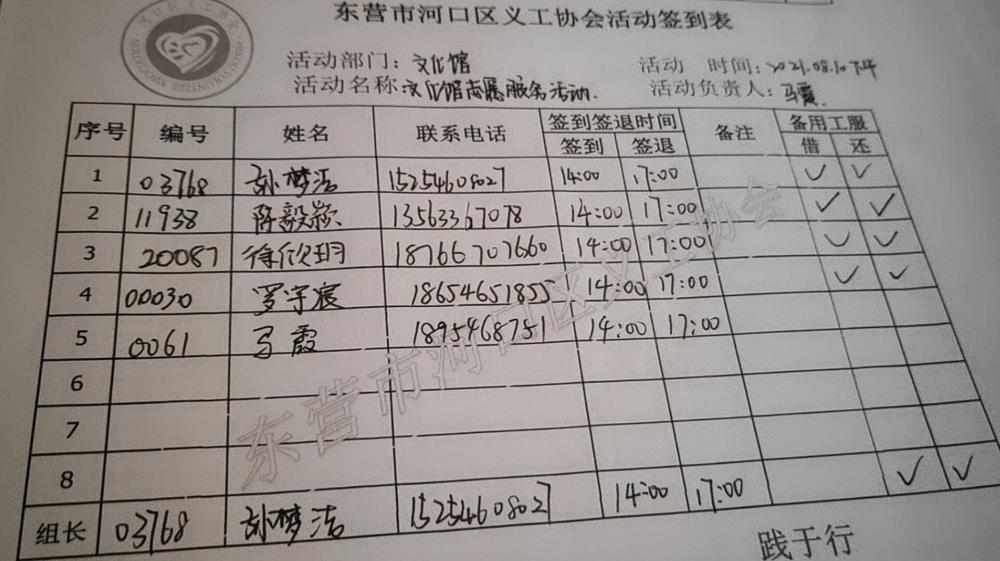 东营市河口区义工协会活动签到表
活动部门：文化馆 活动 时间：2021.08.10下午
活动名称：文化馆志愿服务活动. 活动负责人：马霞.
序号 编号 姓名 联系电话 签到签退时间 备注 备用工服
签到 签退 借 还
1 03768 孙梦洁 15254608027 14:00 17:00 ✓ ✓
2 11938 陈毅颖 13563367078 14:00 17:00 ✓ ✓
3 20087 徐欣玥 18766707660 14:00 17:00 ✓ ✓
4 00030 罗宇宸 18654651855 14:00 17:00 ✓ ✓
5 0061 马霞 1895468751 14:00 17:00
6
7
8 ✓ ✓
组长 03768 孙梦洁 15254608027 14:00 17:00
践于行
东营市河口区义工协会